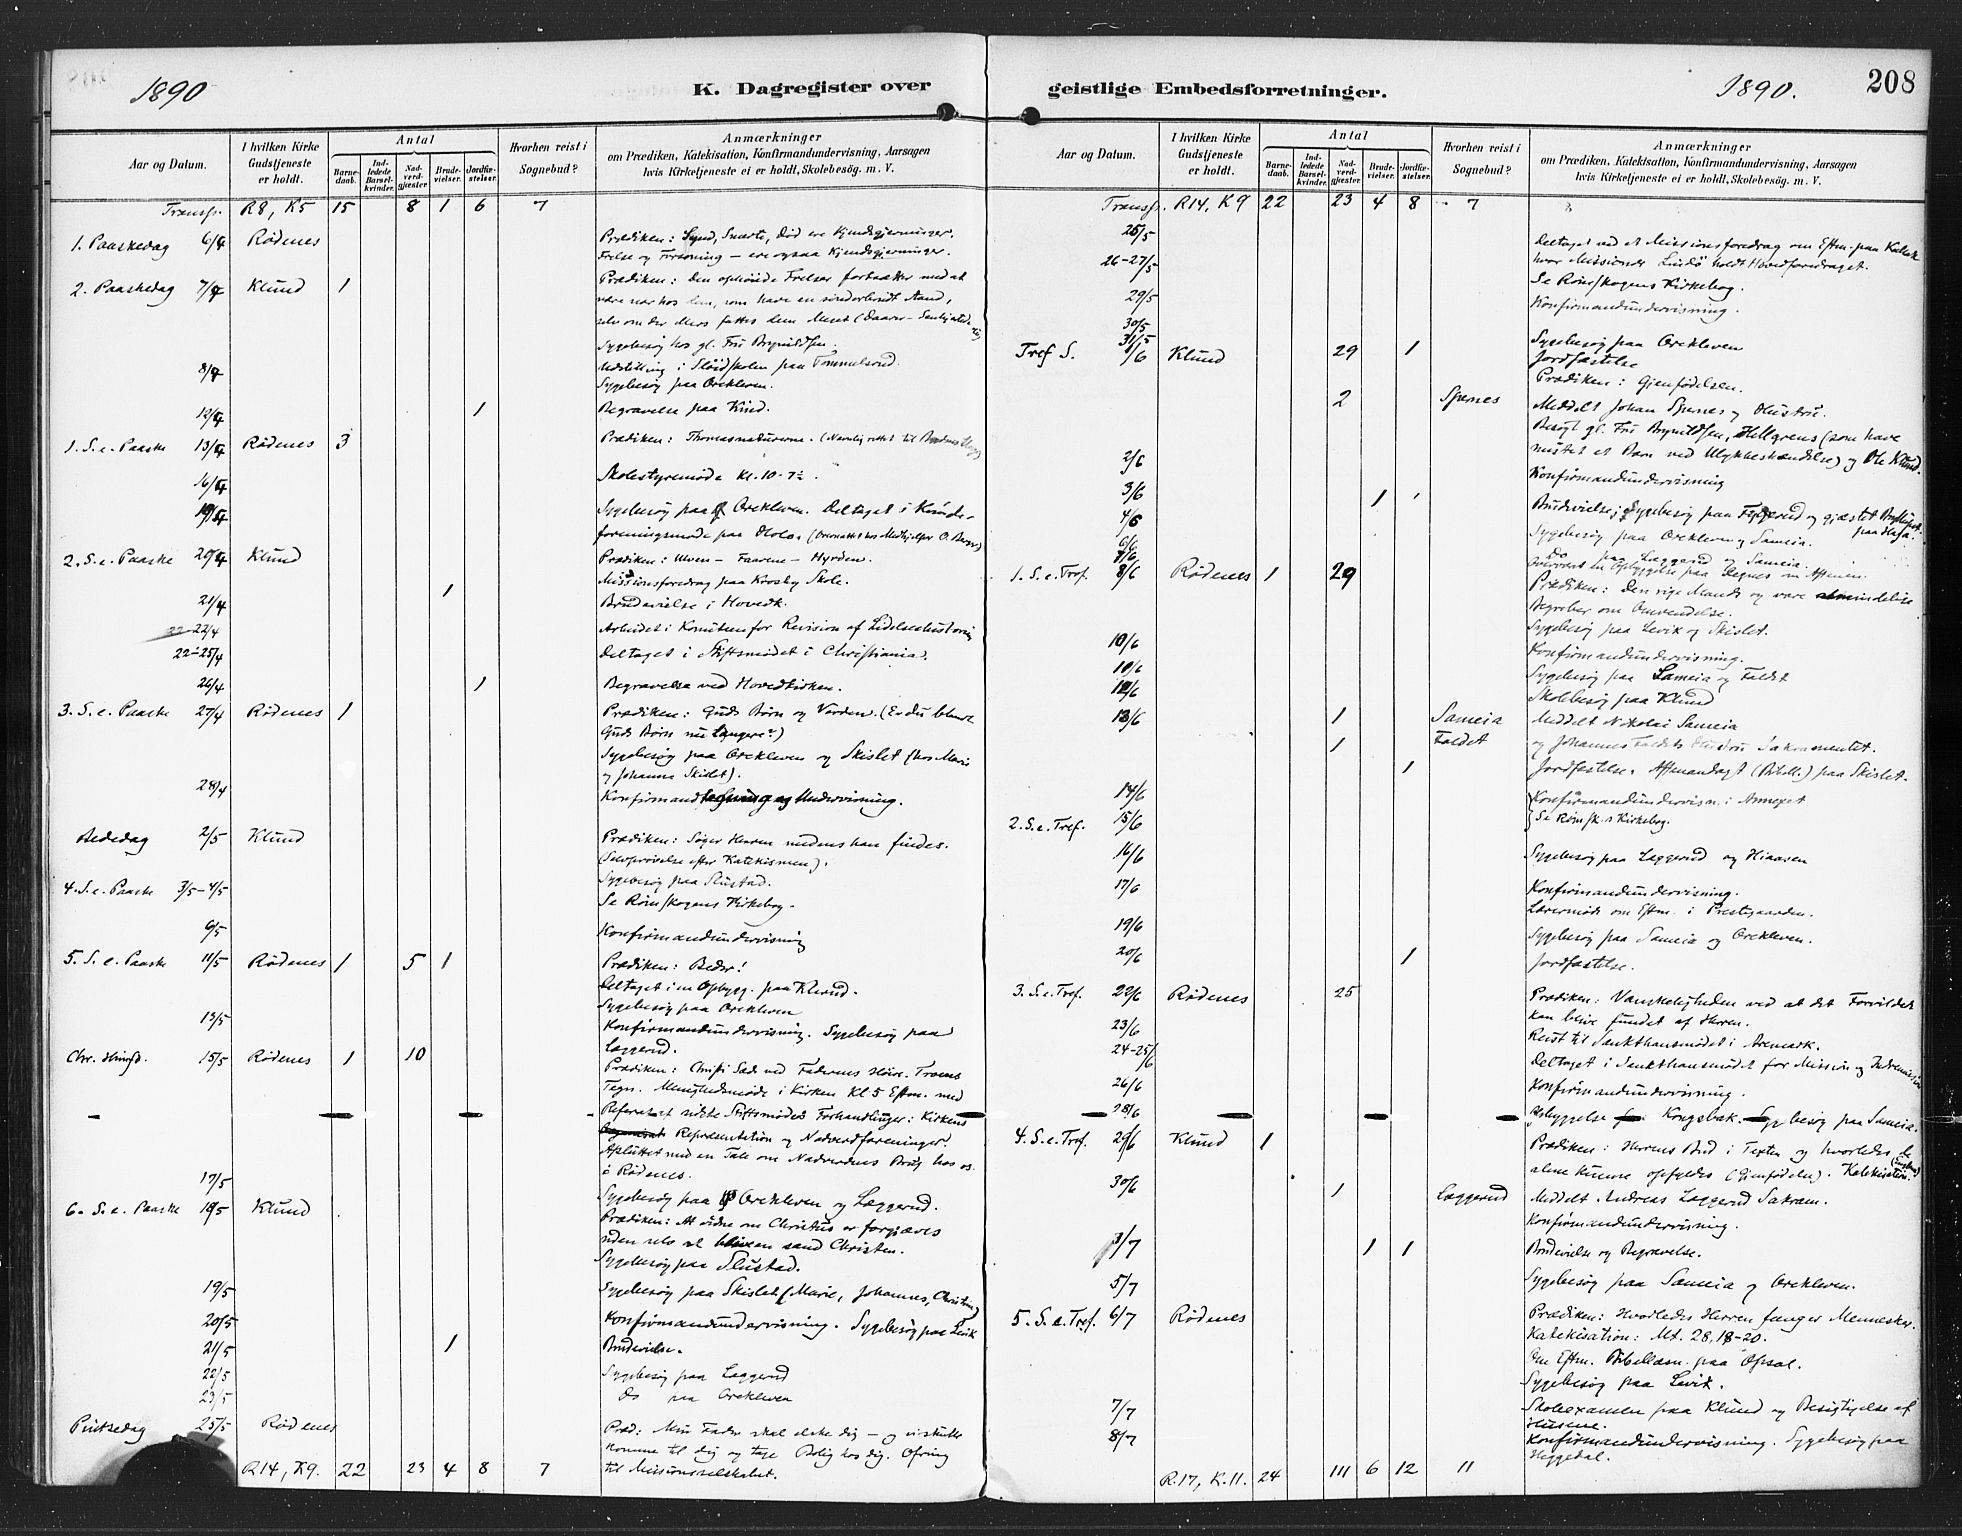 1890
K. Dagregister over
Aar og Datum.
I hvilken Kirke Gudstjeneste er holdt.
Antal
Barnedaab.
Indledede Barselkvinder.
Nadverdgjester
Brudevielser.
Jordfæstelser.
Hvorhen reist i Sognebud?
Anmærkninger
om Prædiken, Katekisation, Konfirmandundervisning, Aarsagen
hvis Kirketjeneste ei er holdt, Skolebesøg. m. V.
Transp. R8, K5 15 8 1 6 7
1. Paaskedag 6/4 Rødenes Prædiken: Synd, Smerte, Død ere Kjendsgjerninger.
Frelse og Forsoning – ere ogsaa Kjendsgjerninger.
2. Paaskedag 7/4 Klund 1 Prædiken: Den ophøiede Frelser fortsætter med at
være nær hos dem, som have en sønderbrudt Aand,
selv om der
Sygebesøg hos gl. Fru Brynildsen.
8/4 Udstilling i Sløidskolen paa Tommelsrud.
Sygebesøg paa Orekleven.
12/4 1 Begravelse paa Kind.
1. S. e. Paaske 13/4 Rødenes 3 Prædiken: Thomasnaturerne.
16/4 Skolestyremøde Kl. 10-7½.
19/4 Sygebesøg paa Orekleven. Deltaget i Kvinde-
foreningsmøde paa
2. S. e. Paaske 20/4 Klund Prædiken: Ulven – Faarene – Hyrden.
Missionsforedrag paa Krosby Skole.
21/4 1 Brudevielse i Hovedk.
22/4 Arbeidet i Komiteen for Revision af Lidelseshistorien
22-25/4 Deltaget i Stiftsmødet i Christiania.
26/4 1 Begravelse ved Hovedkirken.
3. S. e. Paaske 27/4 Rødenes 1 Prædiken: Guds Børn og Verden. (Er du blandt
Guds Børn nu længere?)
Sygebesøg paa Orekleven og Skislet (hos Marie
og Johanna Skislet).
28/4 Konfirmand Undervisning.
Bededag 2/5 Klund Prædiken: Søger Herren medens han findes.
(Selvprøvelse efter Katekismen).
Sygebesøg paa Slustad.
4. S. e. Paaske 3/5-4/5 Se Rømskogens Kirkebog.
9/5 Konfirmandundervisning
5. S. e. Paaske 11/5 Rødenes 1 5 1 Prædiken: Beder!
Deltaget i en Opbygg. paa Klund.
Sygebesøg paa Orekleven
13/5 Konfirmandundervisning. Sygebesøg paa
Laggerud.
Chr. Himfd. 15/5 Rødenes 1 10 Prædiken: Christi Sæde ved Faderens Høire. Troens
Tegn. Menighedsmøde i Kirken Kl 5 Eftm. med
Referat at sidste Stiftsmødes Forhandlinger: Kirkens
Repræsentation og Nadverdforeninger.
Afsluttet med en Tale om Nadverdens Brug hos os
i Rødenes.
17/5 Sygebesøg paa Orekleven og Laggerud.
6. S. e. Paaske 18/5 Klund Prædiken: At vidne om Christus er forgjæves
uden selv at blive en sand Christen.
Sygebesøg paa Slustad.
19/5 Sygebesøg paa Skislet (Marie, Johannes, Christine)
20/5 Konfirmandundervisning. Sygebesøg paa Levik
21/5 1 Brudevielse.
22/5 Sygebesøg paa Laggerud
23/5 Do paa Orekleven
Pintsedag 25/5 Rødenes Præd: Min Fader skal elske dig – og vi skulle
komme til dig og tage Bolig hos dig. Ofring
til Missionsselskabet.
R14, K9. 22 23 4 8 7
geistlige Embedsforretninger.
1890.
208
Aar og Datum.
I hvilken Kirke Gudstjeneste er holdt.
Antal
Barnedaab.
Indledede Barselkvinder.
Nadverdgjester
Brudevielser.
Jordfæstelser.
Hvorhen reist i Sognebud?
Anmærkninger
om Prædiken, Katekisation, Konfirmandundervisning, Aarsagen
hvis Kirketjeneste ei er holdt, Skolebesøg. m. V.
Transp. R14, K9 22 23 4 8 7
25/5 Deltaget ved et Missionsforedrag om Eftm. paa
hvor Missionær Lindø holdt Hovedforedraget.
26-27/5 Se Rømskogens Kirkebog.
29/5 Konfirmandundervisning.
30/5 Sygebesøg paa Orekleven
31/5 Jordfæstelse
Tref S. 1/6 Klund 29 1 Prædiken: Gjenfødelsen.
2 Spernes Meddelt Johan Spernes og Hustru.
Besøgt gl. Fru Brynildsen, Hellgrens (som have
mistet et Barn ved Ulykkeshændelse) og Ole Klund.
2/6 Konfirmandundervisning
3/6 1 Brudevielse, Sygebesøg paa og gjæstet Bryllupet
4/6 Sygebesøg paa Orekleven og Sameia.
6/6 Do paa Laggerud og Sameia.
7/6 Overvært en Opbyggelse paa om Aftenen.
1. S. e. Tref. 8/6 Rødenes 1 29 Prædiken: Den rige Mands og vore almindelige
Begreber om Omvendelse.
Sygebesøg paa Levik og Skislet.
10/6 Konfirmandundervisning.
10/6 Sygebesøg paa Sameia og Faldet
12/6 Skolebesøg paa Klund
13/6 1 Sameia Meddelt Nikolai Sameia
1 Faldet og Johannes Faldets Hustru Sakramentet.
1 Jordfæstelse. Aftenandagt (Bibell.) paa Skislet.
14/6 Konfirmandundervisn. i Annexet
2. S. e. Tref. 15/6 Se Rømsk.s Kirkebog.
16/6 Sygebesøg paa Laggerud og Hiaasen
17/6 Konfirmandundervisning.
Lærermøde om Eftm. i Prestegaarden.
19/6 Sygebesøg paa Sameia og Orekleven.
20/6 1 Jordfæstelse.
3. S. e. Tref. 22/6 Rødenes 25 Prædiken: Vanskeligheden ved at det Forvildede
kan blive fundet af Herren.
23/6 Reist til Sankthansmødet i Aremark.
24-25/6 Deltaget i Sankthansmødet for Mission og Indremission
26/6 Konfirmandundervisning.
28/6 Opbyggelse Kongsbak. Sygebesøg paa Sameia.
4. S. e. Tref. 29/6 Klund 1 Prædiken: Herrens Bud i Texten og hvorledes de
alene kunne opfyldes (Gjenfødelse). Katekisation.
30/6 1 Laggerud Meddelt Andreas Laggerud Sakram.
Konfirmandundervisning.
3/7 1 1 Brudevielse og Begravelse.
5/7 Sygebesøg paa Sameia og Orekleven.
5. S. e. Tref. 6/7 Rødenes Prædiken: Hvorledes Herren fanger Mennesker.
Katekisation: Mt. 28, 18-20.
Om Eftm. Bibellæsn. paa Opsal.
Sygebesøg paa Levik.
7/7 Skoleexamen paa Klund og Besigtigelse af
Husene.
8/7 Konfirmandundervisning. Sygebesøg paa
Heggedal.
R.17, K.11. 24 111 6 12 11